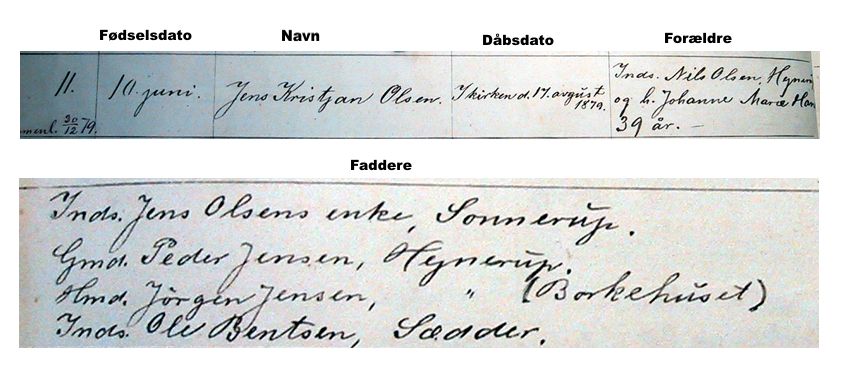 Fødselsdato Navn Dåbsdato Forældre
11. 10. juni. Jens Kristjan Olsen. I kirken d. 17. avgust 1879. Inds. Nils Olsen, Hejneru
og h. Johanne Marie Han
39 år. —
30/12 79.
Faddere
Inds. Jens Olsens enke, Sonnerup.
Gmd. Peder Jensen, Hejnerup.
Hmd. Jörgen Jensen, " (Borkehuset)
Inds. Ole Bentsen, Sædder.